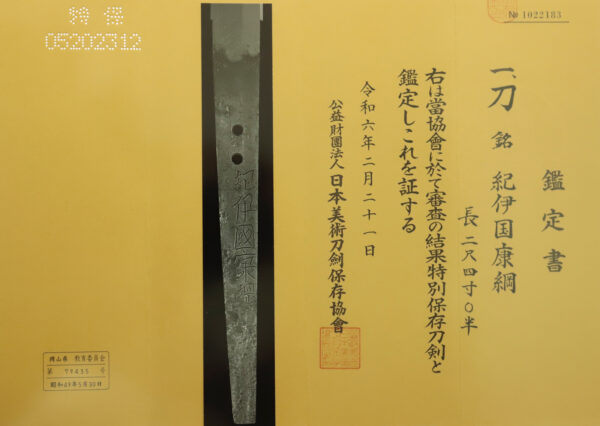 № 1022183
鑑定書
一、刀 銘 紀伊国康綱
長二尺四寸〇半
右は當協會に於て審査の結果特別保存刀剣と
鑑定しこれを証する
令和六年二月二十一日
公益財團法人日本美術刀劍保存協會
特保
05202312
紀伊國康綱
岡山県 教育委員会
第 77435 号
昭和49年5月30日